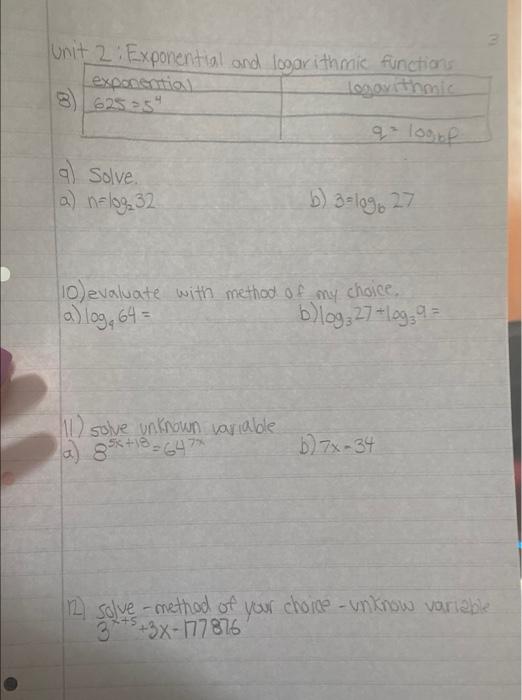 3
Unit 2: Exponential and logarithmic functions
exponential logarithmic
8) 625=5⁴
q = log_b p
9) Solve.
a) n=log₂32 b) 3=log_b 27
10) evaluate with method of my choice.
a) log₄ 64 = b) log₃27+log₃9=
11) solve unknown variable
a) 8^(5x+18) = 64^(7x) b) 7x-34
12) solve - method of your choice - unknow variable
3^(x+5) + 3x - 177876